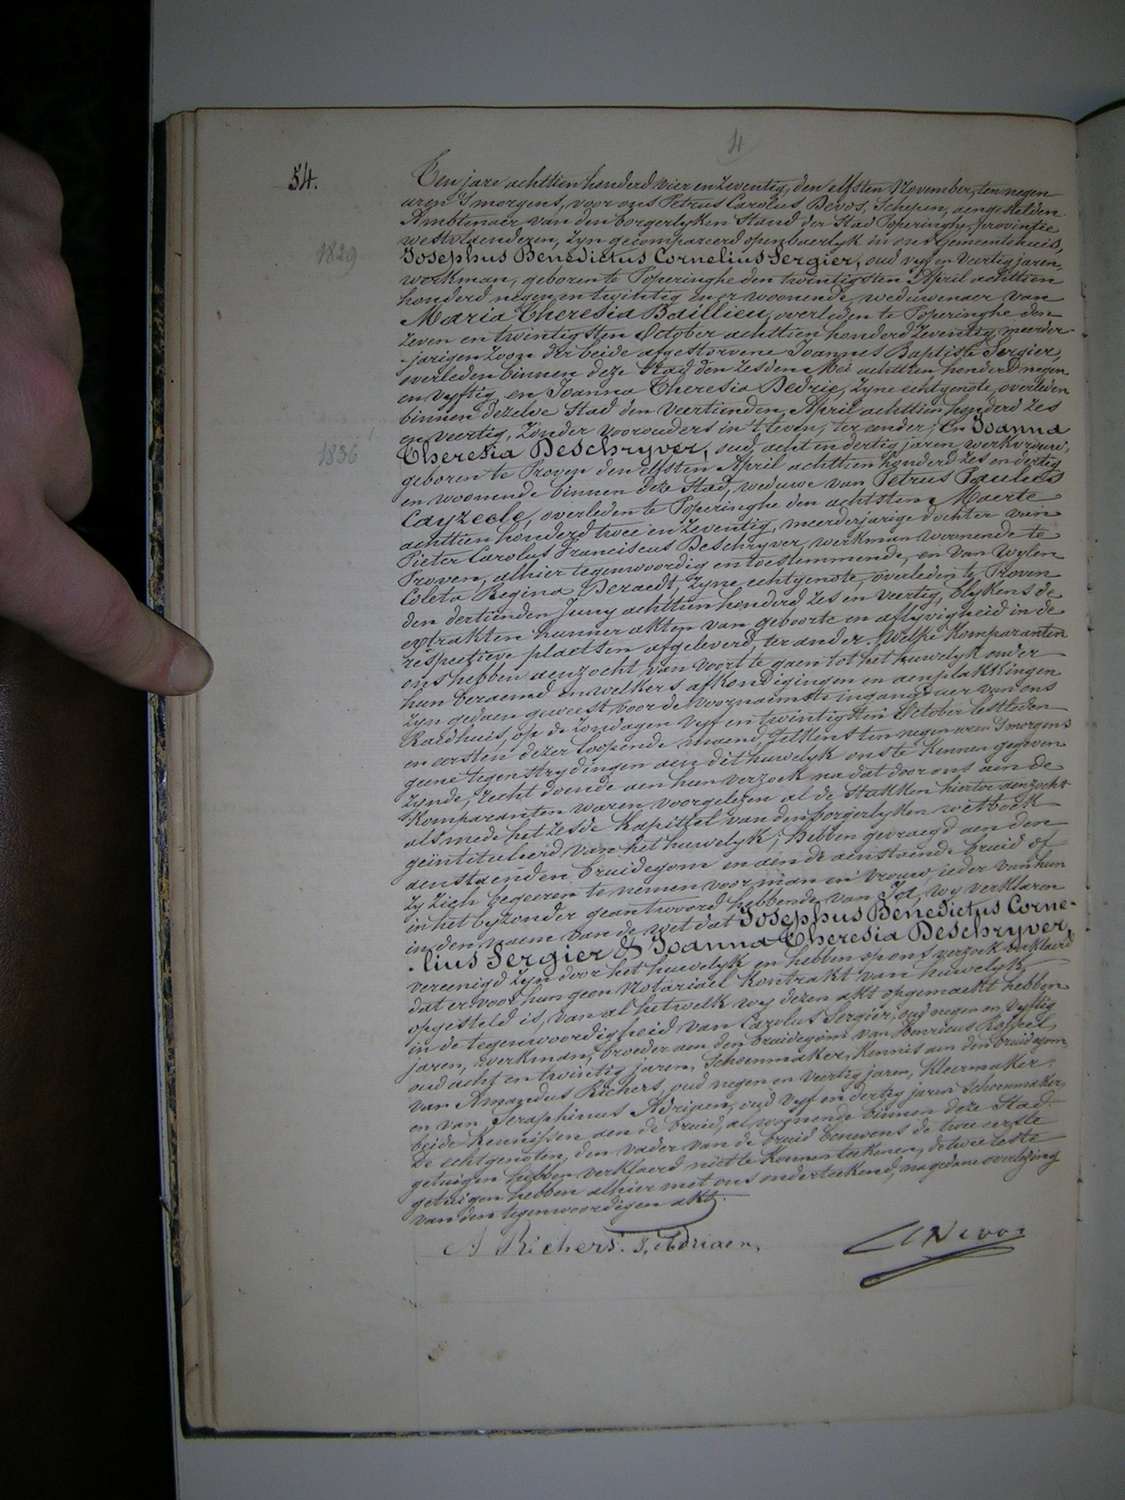 4
54.
Ten jare achttien honderd vier en zeventig, den elfsten November, ten negen
uren 'S morgens, voor ons Petrus Carolus Devos, Schepen, aengestelden
Ambtenaer van den borgerlyken Stand der Stad Poperinghe, provintie
westvlaenderen, zyn gecompareerd openbaerlyk in ons Gemeentehuis,
1829
Josephus Benedictus Cornelius Sergier, oud vyf en Veertig jaren,
workman, geboren te Poperinghe den twintigsten April achttien
honderd negen en twintig en er woonende, weduwenaer van
Maria Theresia Baillieu, overleden te Poperinghe den
zeven en twintigsten October achttien honderd zeventig, meerder-
-jarigen zoon der beide afgestorvene Joannes Baptiste Sergier,
overleden binnen deze Stad den zesden Mei achttien honderd negen
en vyftig, en Joanna Theresia Dedrie, zyne echtgenote, overleden
binnen dezelve Stad den Veertienden April achttien honderd zes
en veertig, zonder voorouders in 't leven, ter ander; En Joanna
1836
Theresia Deschryver, oud acht en dertig jaren, werkvrouw,
geboren te Proven den elfsten April achttien honderd zes en dertig
en woonende binnen deze Stad, weduwe van Petrus Paulus
Cayzeele, overleden te Poperinghe den achtsten Maerte
achttien honderd twee en zeventig, meerderjarige dochter van
Pieter Carolus Franciscus Deschryver, werkman woonende te
Proven, alhier tegenwoordig en toestemmende, en van wylen
Coleta Regina Deraedt, zyne echtgenote, overleden te Proven
den dertienden Juny achttien honderd zes en veertig, blykens de
extrakten hunner akten van geboorte en aflyvigheid in de
respectieve plaetsen afgeleverd, ter ander. Welke Komparanten
ons hebben aenzocht van voort te gaen tot het huwelyk onder
hun beraemd en welkers afkondigingen en aenplakkingen
zyn gedaen geweest voor de voornaemste ingangdeur van ons
Raedhuis, op de zondagen vyf en twintigsten October lestleden
en eersten dezer loopende maend, telkens ten negen uren 'S morgens
geene tegenstrydingen aen dit huwelyk ons te Kennen gegeven
zynde, recht doende aen hun verzoek na dat door ons aen de
Komparanten waren voorgelezen al de Stukken hiertoe aenzocht
alsmede het zesde Kapittel van den borgerlyken wetboek
geïntituleerd van het huwelyk; Hebben gevraegd aen den
aenstaenden bruidegom en aen de aenstaende bruid of
zy zich begeeren te nemen voor man en vrouw, ieder van hun
in het byzonder geantwoord hebbende van Ja, wy verklaren
in den naem van de wet dat Josephus Benedictus Corne-
-lius Sergier & Joanna Theresia Deschryver,
vereenigd zyn door het huwelyk en hebben op ons verzoek verklaerd
dat er voor hun geen Notarieel Kontrakt van huwelyk
opgesteld is, van al hetwelk wy dezen akt opgemaekt hebben
in de tegenwoordigheid van Carolus Sergier, oud negen en vyftig
jaren, werkman, broeder aen den bruidegom van Henricus
oud acht en twintig jaren, Schoenmaker, Kennis aen den bruidegom,
van Amandus Richers, oud negen en veertig jaren, Kleermaker,
en van Seraphinus Adriaen, oud vyf en dertig jaren Schoenmaker,
beide Kennissen aen de bruid, al woonende binnen deze Stad.
De echtgenoten, den vader van de bruid benevens de twee eerste
getuigen hebben verklaerd niet te Konnen teekenen, de twee leste
getuigen hebben alhier met ons onderteekend, na gedane overlezing
van den tegenwoordigen akt.
A Richers. S, Adriaen,